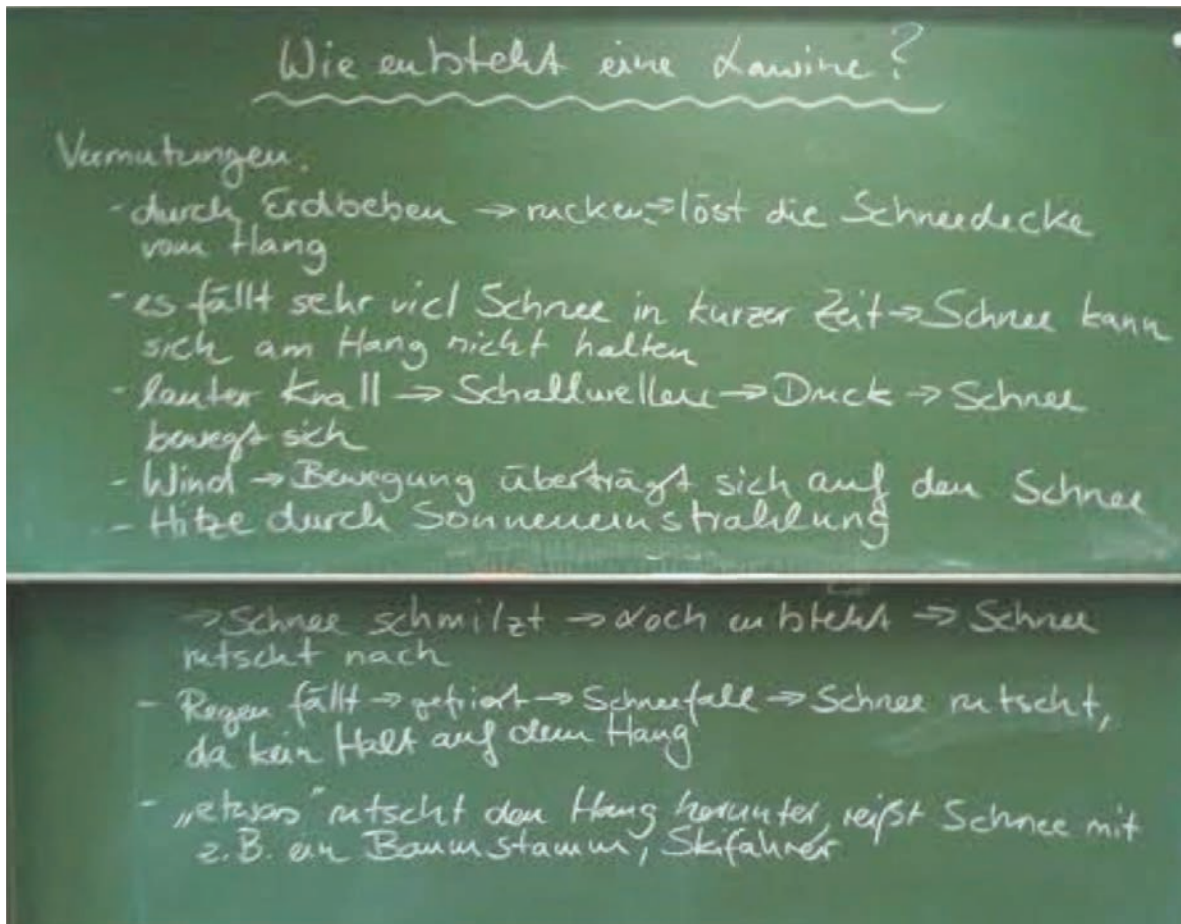 Wie entsteht eine Lawine?
Vermutungen:
- durch Erdbeben → rucken → löst die Schneedecke
vom Hang
- es fällt sehr viel Schnee in kurzer Zeit → Schnee kann
sich am Hang nicht halten
- lauter Knall → Schallwellen → Druck → Schnee
bewegt sich
- Wind → Bewegung überträgt sich auf den Schnee
- Hitze durch Sonneneinstrahlung
→ Schnee schmilzt → Loch entsteht → Schnee
rutscht nach
- Regen fällt → gefriert → Schneefall → Schnee rutscht,
da kein Halt auf dem Hang
- „etwas" rutscht den Hang herunter, reißt Schnee mit
z.B. ein Baumstamm, Skifahrer